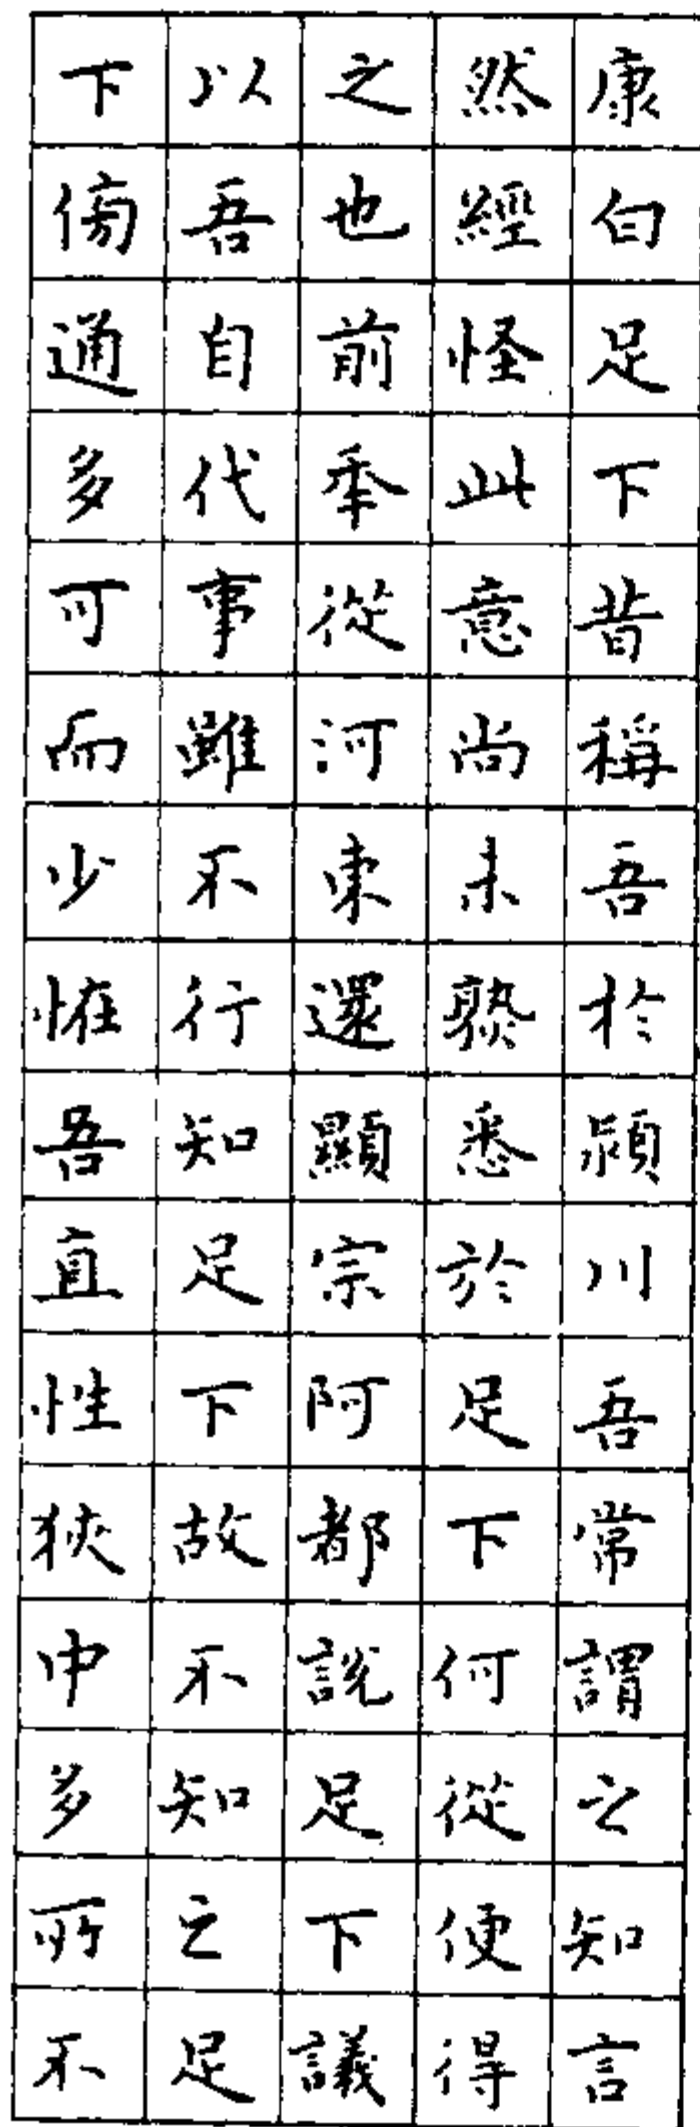 康白足下昔稱吾於潁川吾常謂之知言
然經怪此意尚未熟悉於足下何從便得
之也前年從河東還顯宗阿都說足下議
以吾自代事雖不行知足下故不知之足
下傍通多可而少恠吾直性狹中多所不